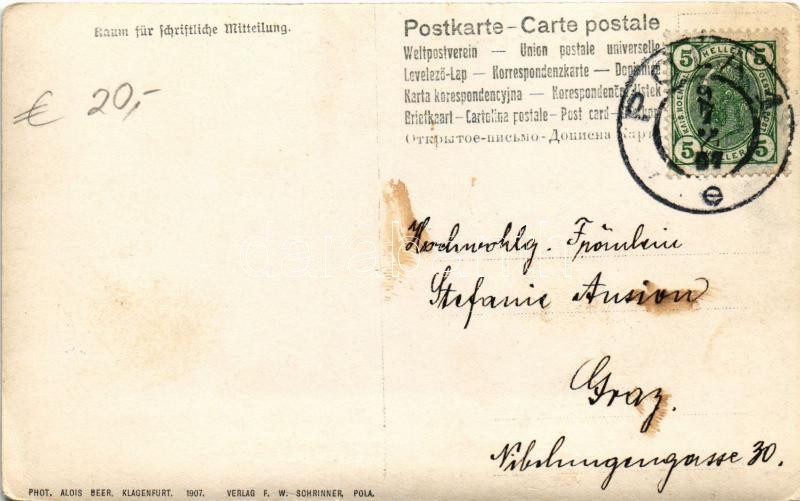 Raum für schriftliche Mitteilung.
€ 20,-
Postkarte – Carte postale
Weltpostverein — Union postale universelle
Levelező-Lap — Korrespondenzkarte — Dopisnice
Karta korespondencyjna — Korespondenční lístek
Briefkaart – Cartolina postale – Post card –
Открытое-письмо – Дописна карта
5 HELLER 5
5 HELLER 5
POLA
07
e
Hochwohlg. Fräulein
Stefanie Ansion
Graz.
Nibelungengasse 30.
PHOT. ALOIS BEER, KLAGENFURT. 1907. VERLAG F. W. SCHRINNER, POLA.